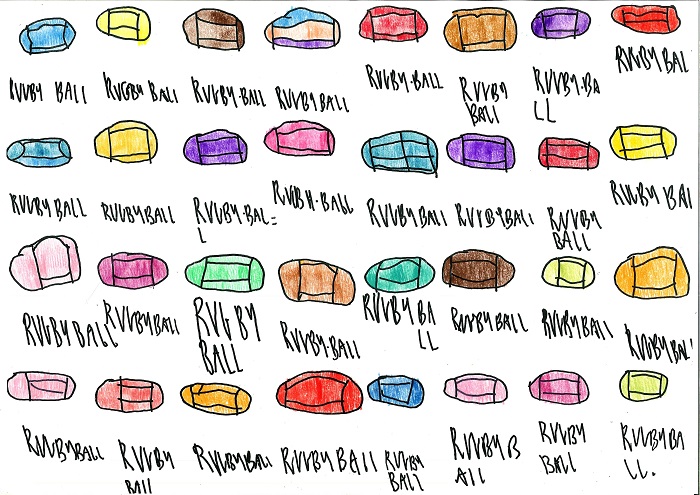 RUGBY BALL RUGBY BALL RUGBY-BALL RUGBY BALL RUGBY-BALL RUGBY BALL RUGBY-BA LL RUGBY BAL
RUGBY BALL RUGBY BALL RUGBY-BAL= L RUGBY-BALL RUGBY BALL RUGBY BALL RUGBY BALL RUGBY BAL
RUGBY BALL RUGBY BALL RUGBY BALL RUGBY-BALL RUGBY BA LL RUGBY BALL RUGBY BALL RUGBY BAL
RUGBY BALL RUGBY BALL RUGBY BALL RUGBY BALL RUGBY BALL RUGBY B ALL RUGBY BALL RUGBY BA LL.